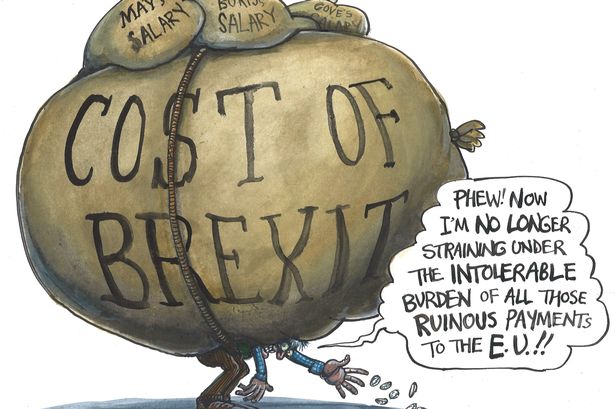 MAY'S
SALARY
BORIS'S
SALARY
GOVE'S
SALARY
COST OF
BREXIT
PHEW! NOW
I'M NO LONGER
STRAINING UNDER
THE INTOLERABLE
BURDEN OF ALL THOSE
RUINOUS PAYMENTS
TO THE E.U.!!